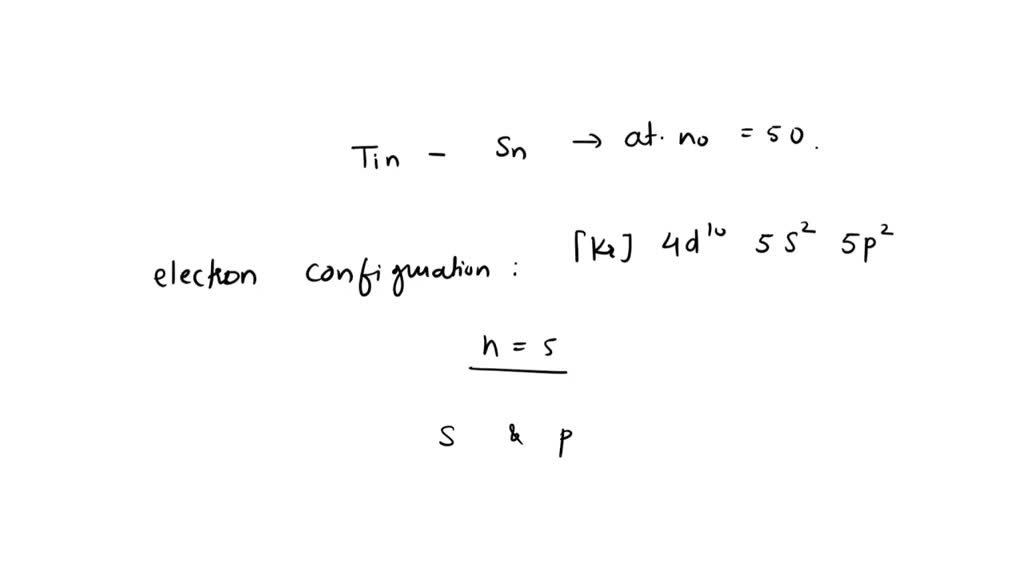 Tin - Sn → at. no = 50.
electron configuration : [Kr] 4d¹⁰ 5s² 5p²
n = 5
s & p